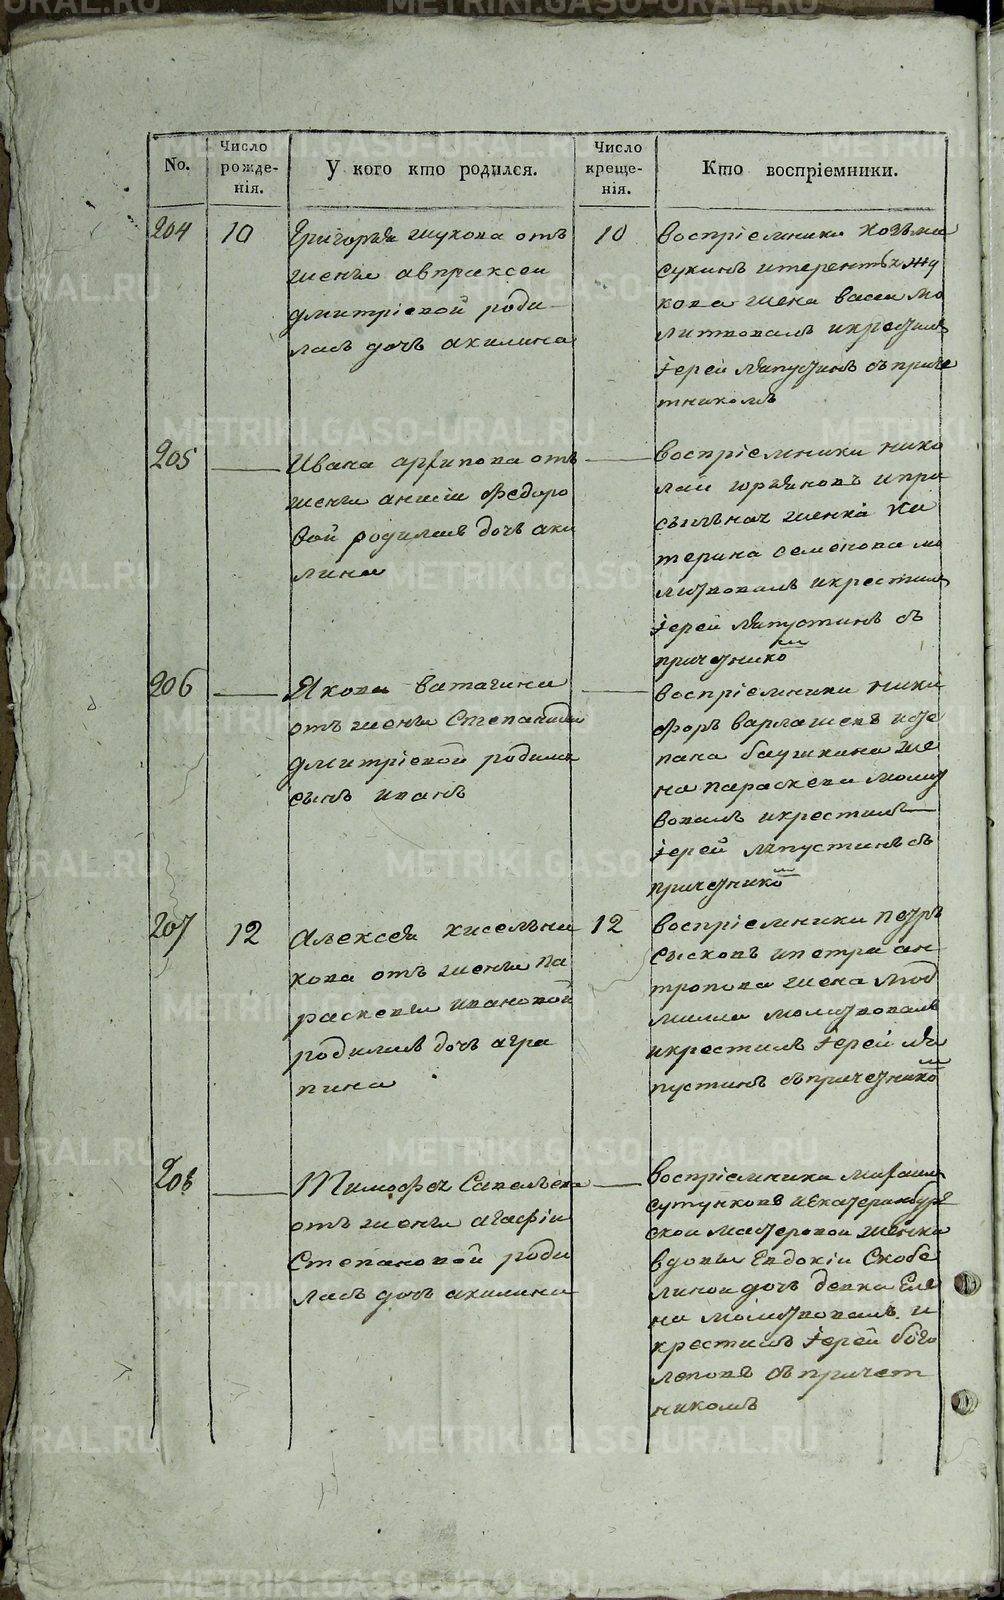 No.
Число рожде-нія.
У кого кто родился.
Число креще-нія.
Кто воспріемники.
204
10
Григорья жукова отъ
жены авпраксеи
дмитріевой роди
лась дочь акилина
10
воспріемники козьма
сукинъ итерентья жу
кова жена васса мо
литвовалъ икрестилъ
Іерей ляпустинъ съприче
тникомъ
205
Ивана архипова отъ
жены анисіи Федоро
вой родилась дочь аки
лина
воспріемники нико
лай юрьяновъ ипри
сыльная женка Ка
терина семенова мо
литвовалъ икрестилъ
Іерей ляпустинъ съ
причетнико
м
206
Якова ватагина
отъ жены Степаниды
дмитріевой родился
сынъ иванъ
воспріемники ники
форъ варлашевъ исте
пана баушкина же
на параскева молит
вовалъ икрестилъ
Іерей ляпустинъ съ
причетнико
м
207
12
Алексея кисельни
кова отъ жены Па
раскевы ивановой
родилась дочь агра
пина
12
воспріемники петръ
сысковъ ипетра ан
тропова жена люд
мила молитвовалъ
икрестилъ Іерей ля
пустинъ съпричетнико
м
208
Тимофея Савельева
отъ жены агафіи
Степановой роди
лась дочь акилина
воспріемники михаила
сутунковъ иекатеринбург
ской мастеровой женки
вдовы Евдокіи Скобе
линои дочь девка Еле
на молитвовалъ и
крестилъ Іерей бого
леповъ съ причет
никомъ
METRIKI.GASO-URAL.RU